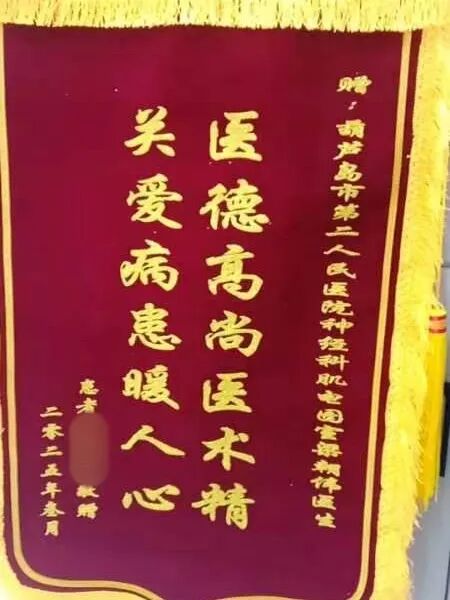 赠：葫芦岛市第二人民医院神经科肌电图室梁翔伟医生
医德高尚医术精
关爱病患暖人心
患者 敬赠
二零二五年叁月